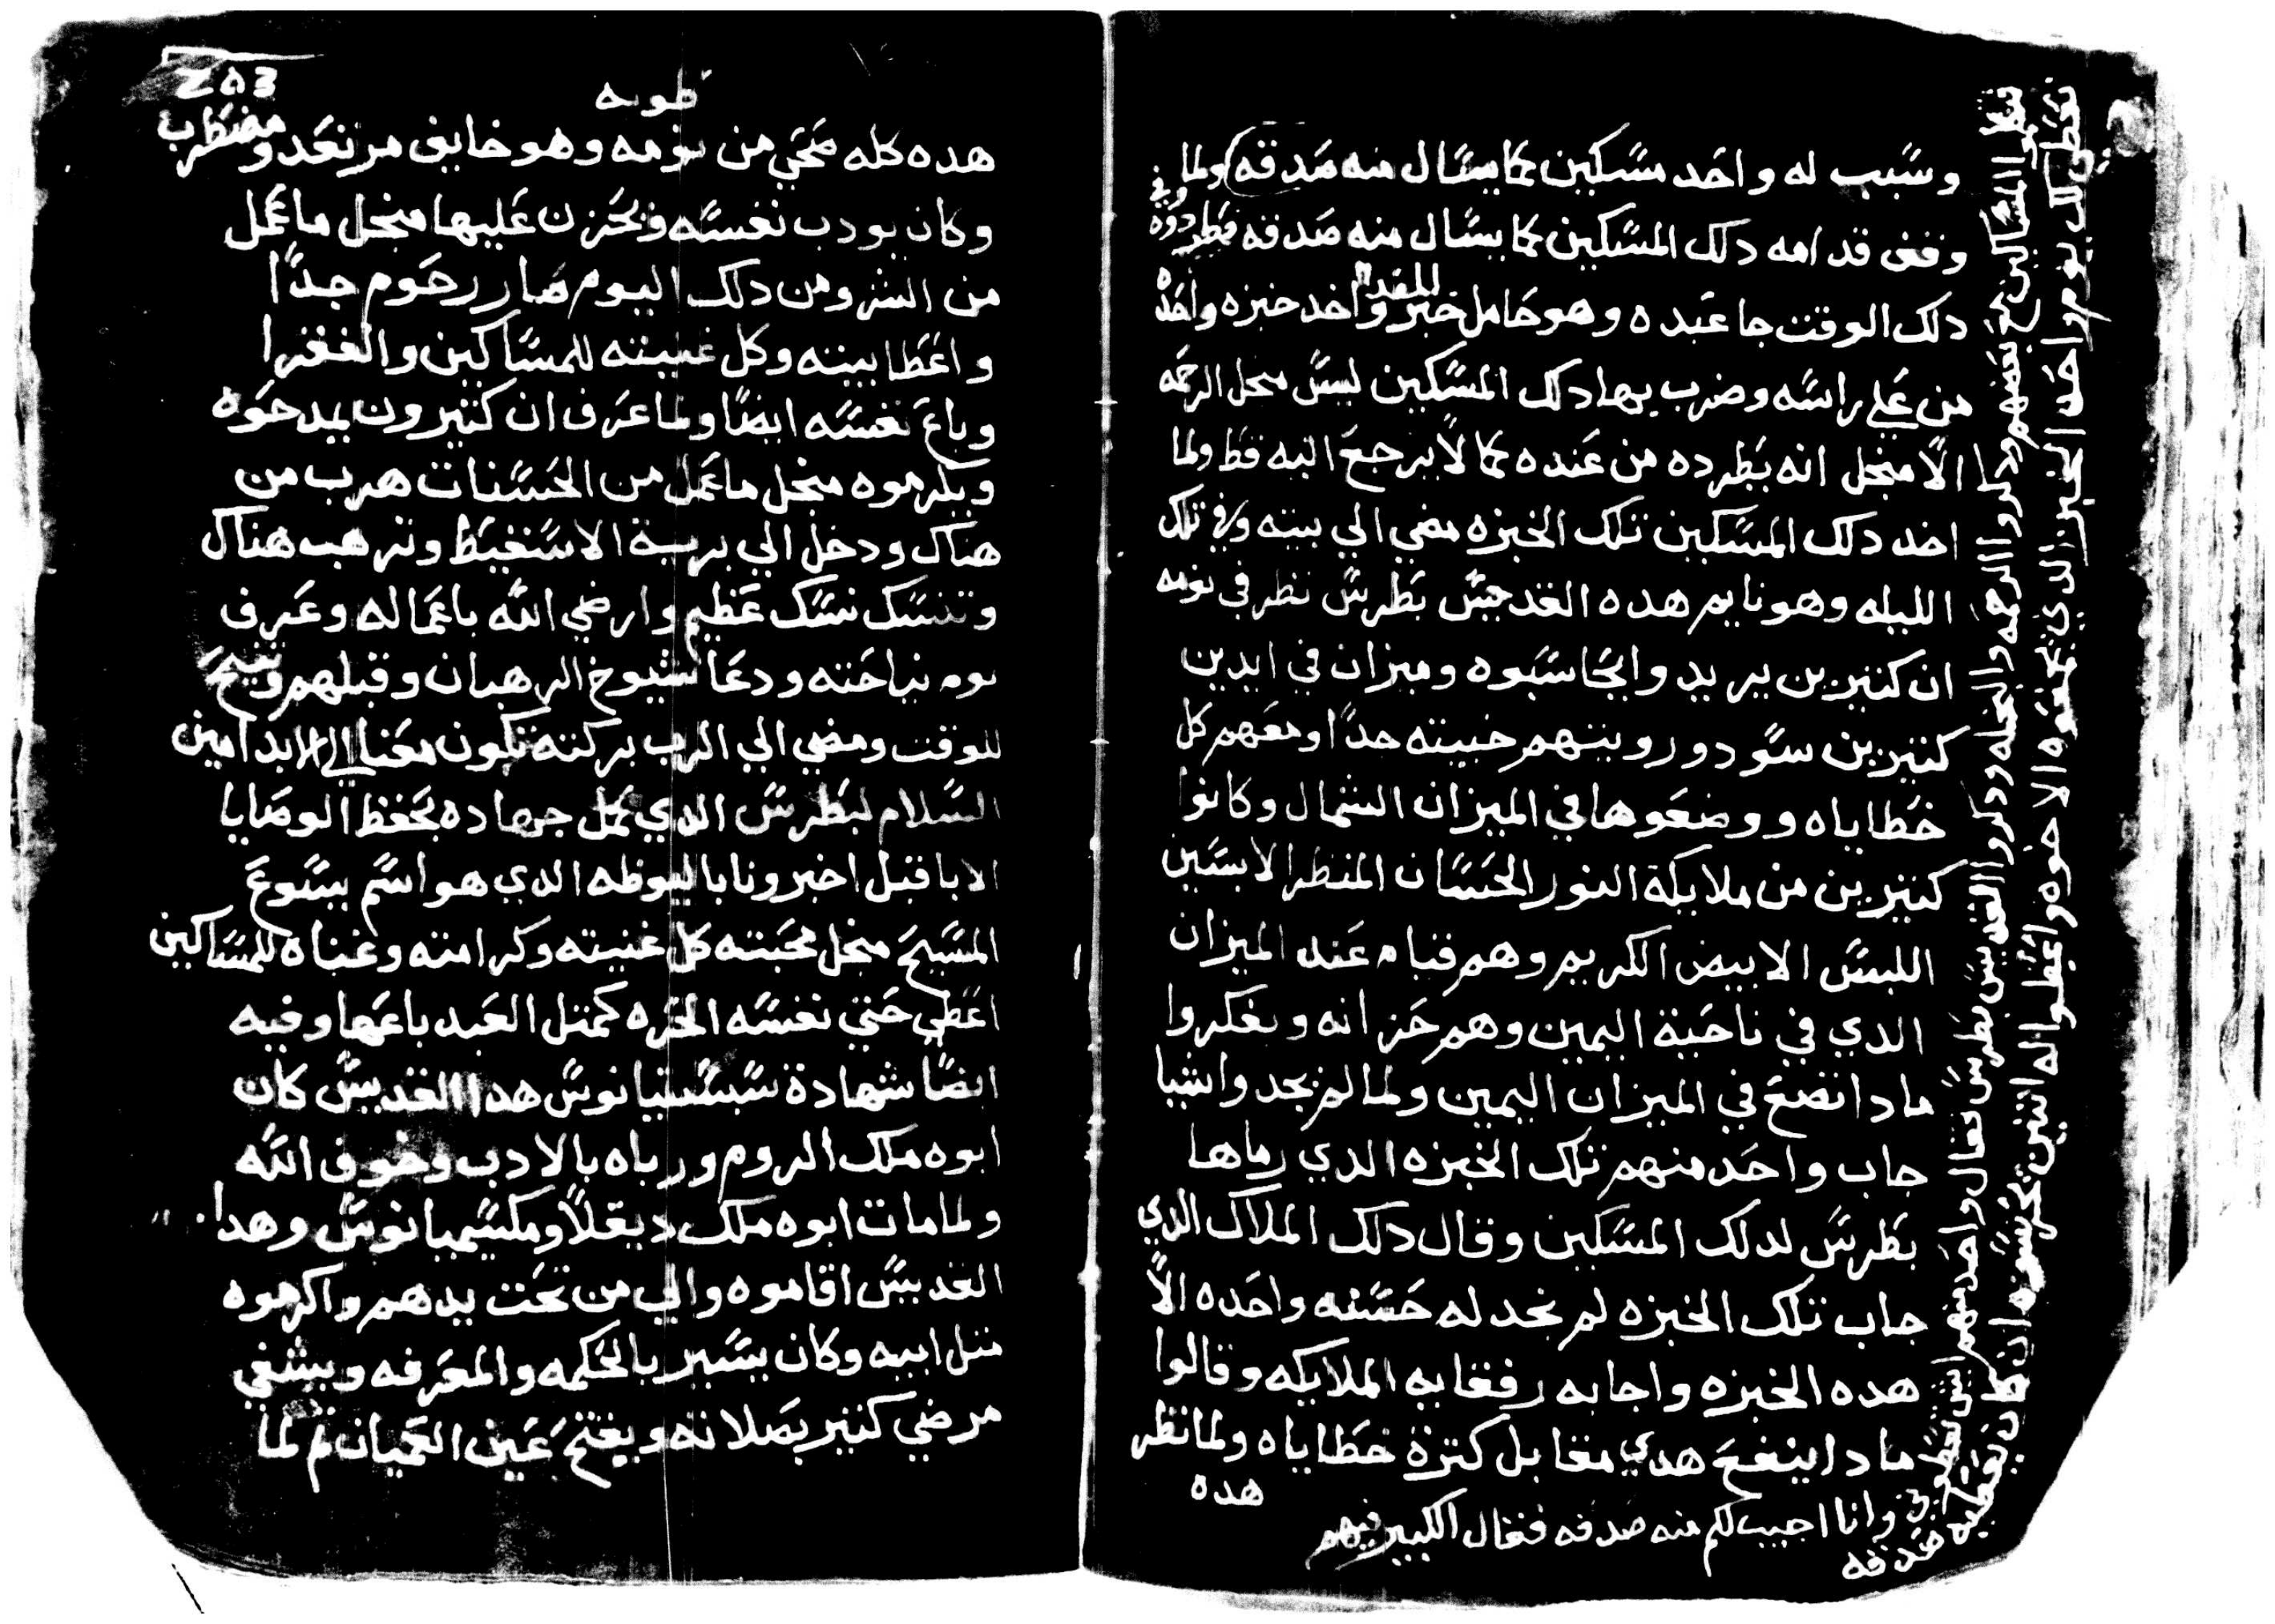 وسبب له واحد مسكين كما يسال منه صدقه ولما
وقف قدامه دلك المسكين كما يسال منه صدقه فطردوه وفي
دلك الوقت جا عبده وهو حامل خبز للغدا واخد خبزه واحده
من علي راسه وضرب بها دلك المسكين ليس منجل الرحمه
الا منجل انه يطرده من عنده كما لا يرجع اليه قط ولما
اخد دلك المسكين تلك الخبزه مضي الي بيته وفي تلك
الليله وهو نايم هده القديس بطرس نظر في نومه
ان كتيرين يريدوا يحاسبوه وميزان في ايدين
كتيرين سود وروينهم خبيته جدا ومعهم كل
خطاياه ووضعوها في الميزان الشمال وكانوا
كتيرين من ملايكة النور الحسان المنظر لابسين
اللبس الابيض الكريم وهم قيام عند الميزان
الدي في ناحية اليمين وهم حزانه ويفكروا
مادا نضع في الميزان اليمين ولما لم يجدوا شيا
جاب واحد منهم تلك الخبزه الدي رماها
بطرس لدلك المسكين وقال دلك الملاك الدي
جاب تلك الخبزه لم نجد له حسنه واحده الا
هده الخبزه واجابه رفقايه الملايكه وقالوا
مادا ينفع هدي مقابل كترة خطاياه ولما نظر
هده
المساكين مع بعضهم ودكروا الرحمه والبخله ودكروا القديس بطرس فقال واحد منهم
وانا اجيب لكم منه صدقه فقال الكبير فيهم
ان كان يعطيه صدقه
283
طوبه
هده كله صحي من نومه وهو خايف مرتعد ومضطرب
وكان يودب نفسه ويحزن عليها منجل ما عمل
من الشر ومن دلك اليوم صار رحوم جدا
واعطا بيته وكل غنيته للمساكين والفقرا
وباع نفسه ايضا ولما عرف ان كتيرون يمدحوه
ويكرموه منجل ما عمل من الحسنات هرب من
هناك ودخل الي برية الاسقيط وترهب هناك
وتنسك نسك عظيم وارضي الله باعماله وعرف
يوم نياحته ودعا شيوخ الرهبان وقبلهم وتنيح
للوقت ومضي الي الرب بركته تكون معنا الي الابد امين
السلام لبطرس الدي كمل جهاده بحفظ الوصايا
الابا قبل اخبرونا باليوظه الدي هو اسم يسوع
المسيح منجل محبته كل غنيته وكرامته وغناه للمساكين
اعطي حتي نفسه الحره كمتل العبد باعها وفيه
ايضا شهادة سبستيانوس هدا القديس كان
ابوه ملك الروم ورباه بالادب وخوف الله
ولما مات ابوه ملك ديقلا ومكسيميانوس وهدا
القديس اقاموه والي من تحت يدهم واكرموه
متل ابيه وكان يسير بالحكمه والمعرفه ويشفي
مرضي كتير بصلاته ويفتح عين العميان تم لما